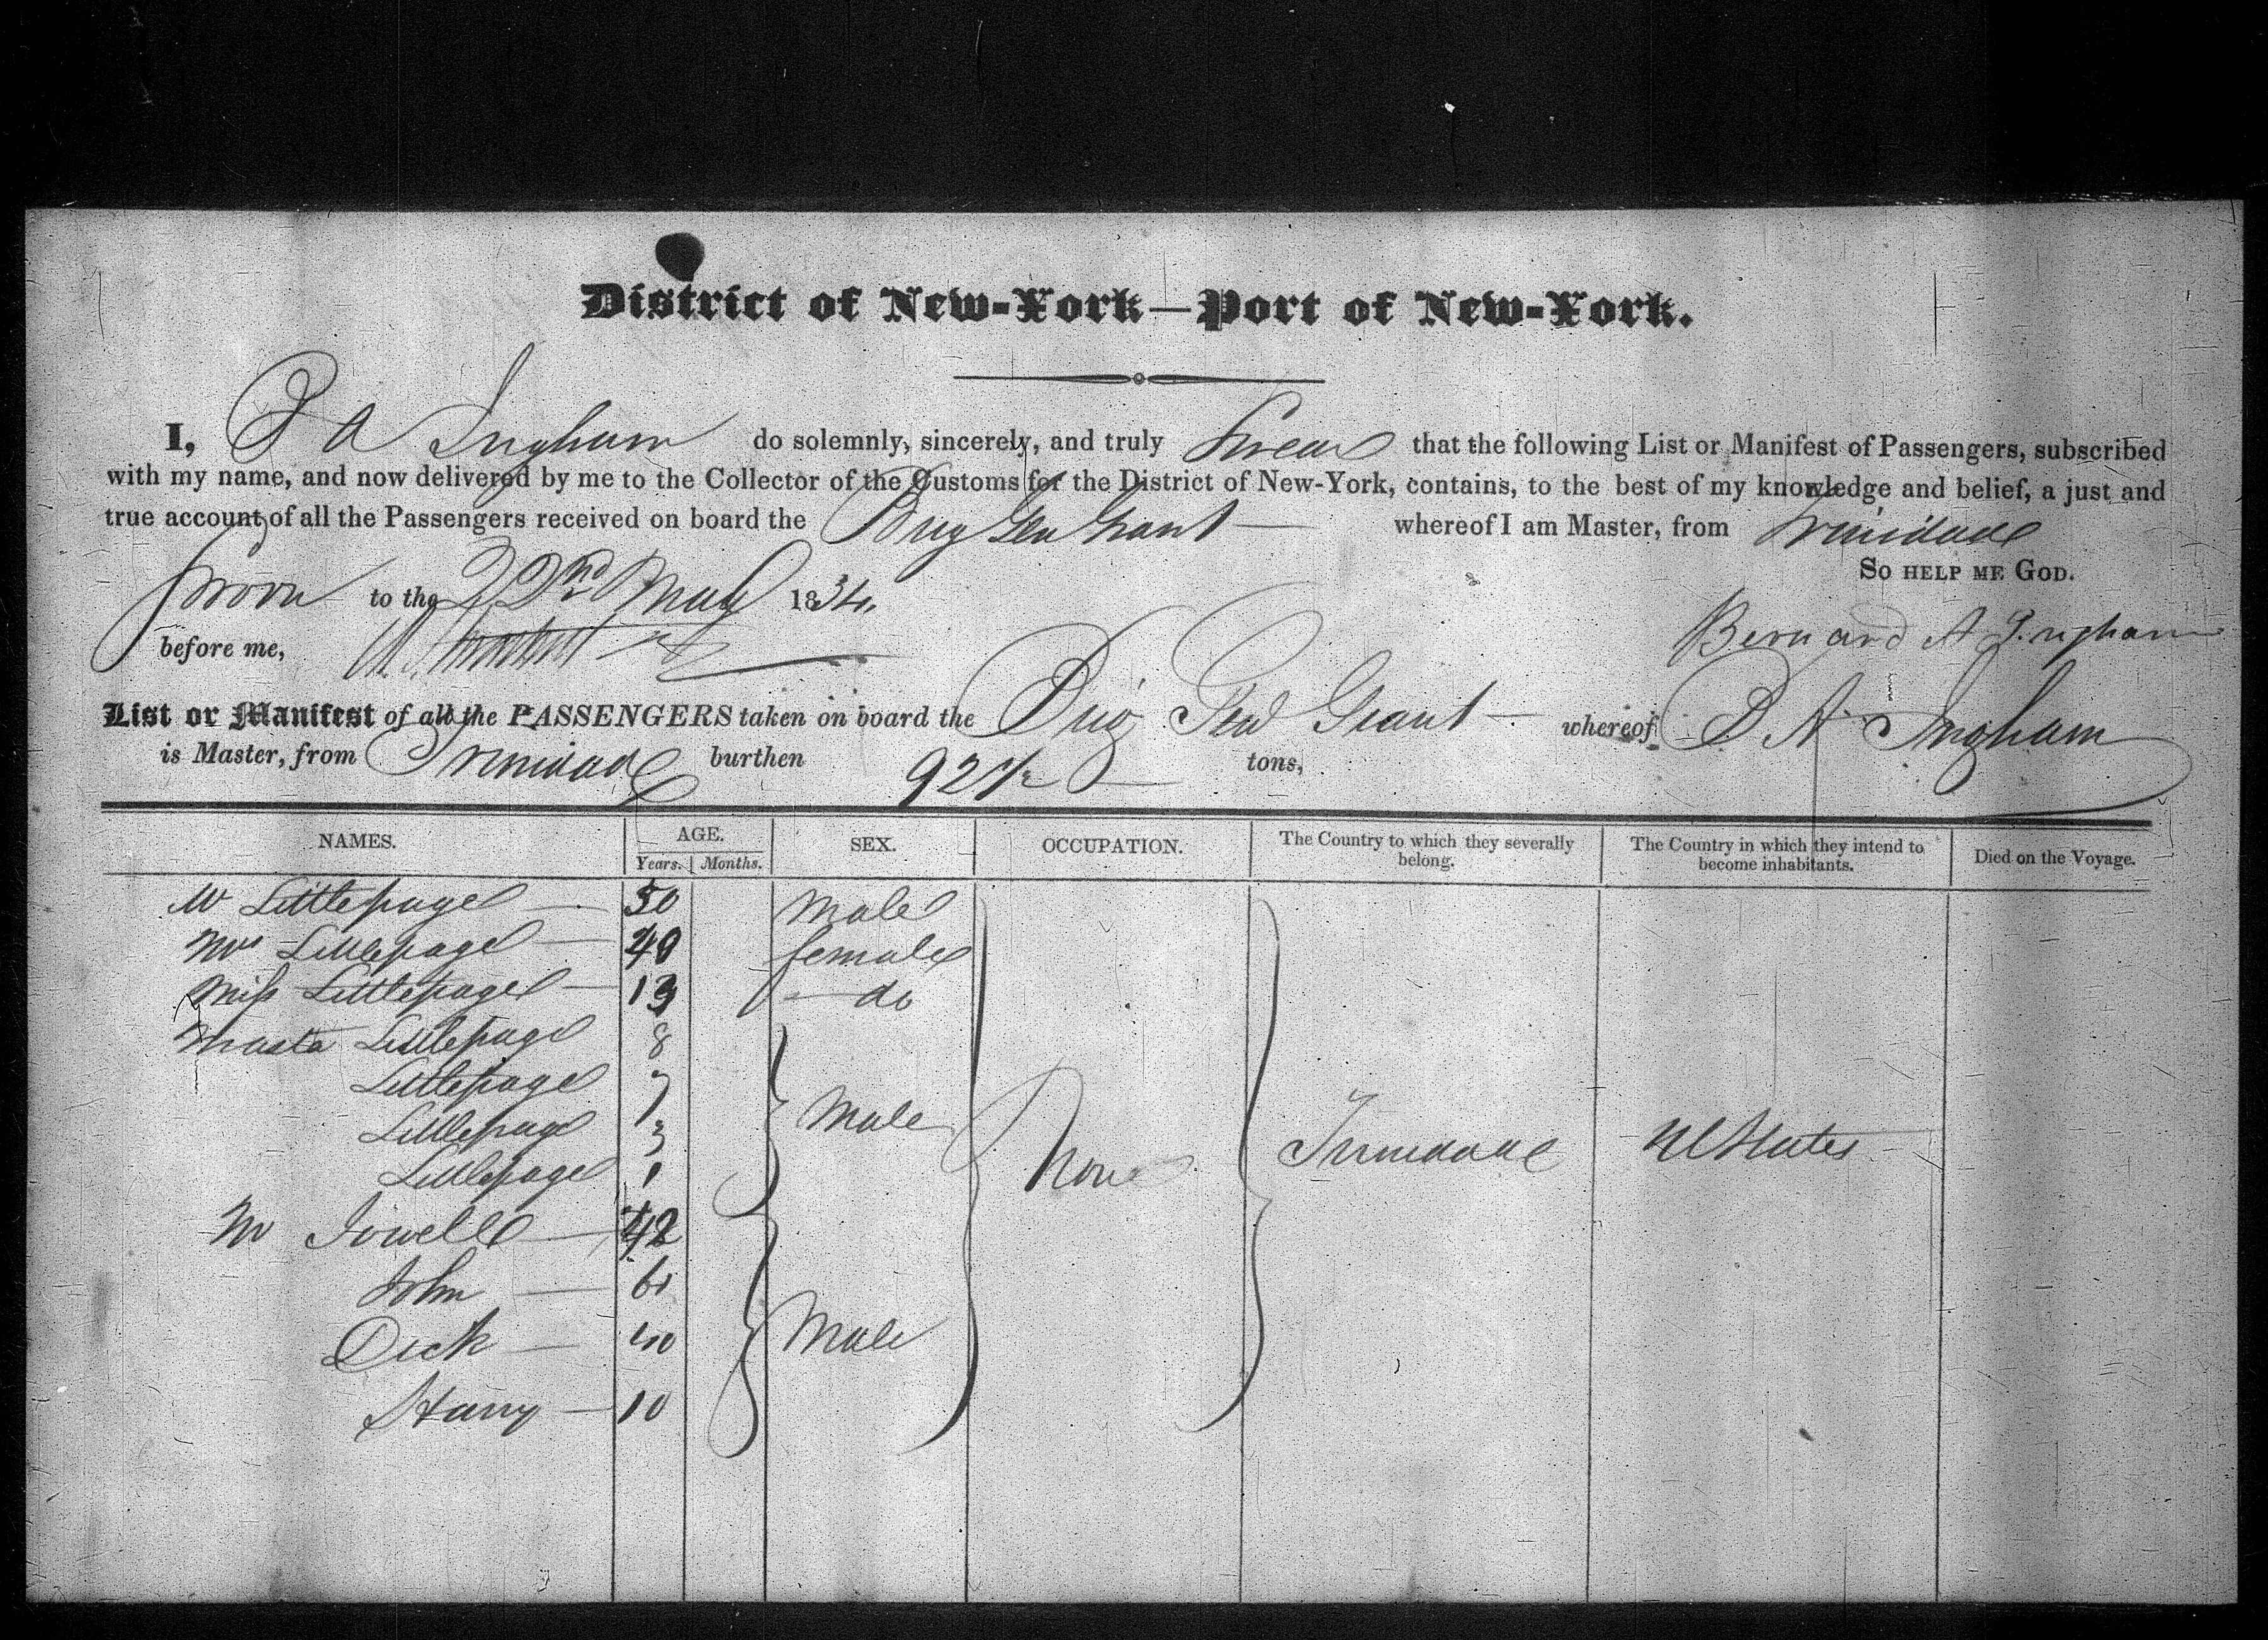 District of New-York—Port of New-York.
I, B A Ingham do solemnly, sincerely, and truly Swear that the following List or Manifest of Passengers, subscribed
with my name, and now delivered by me to the Collector of the Customs for the District of New-York, contains, to the best of my knowledge and belief, a just and
true account of all the Passengers received on board the Brig Gen Grant whereof I am Master, from Trinidade
So help me God.
Sworn to the 22nd May 1834,
before me,
Bernard A Ingham
List or Manifest of all the PASSENGERS taken on board the Brig Gen Grant whereof B A Ingham
is Master, from Trinidade burthen 92 tons,
NAMES. AGE. SEX. OCCUPATION. The Country to which they severally belong. The Country in which they intend to become inhabitants. Died on the Voyage.
Years. Months.
M Littlepage 50 Male
Mrs Littlepage 40 female
Miss Littlepage 13 do
Masta Littlepage 8
Littlepage 7
Littlepage 3 Male None Trinidade U States
Littlepage 1
M Jowell 42
John 60
Dick 40 Male
Harry 10